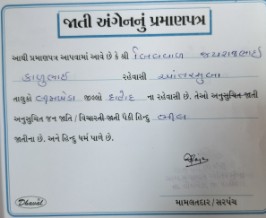 જાતી અંગેનનું પ્રમાણપત્ર
આથી પ્રમાણપત્ર આપવામાં આવે છે કે શ્રી નિનામા જયરાજભાઈ
કાળુભાઈ રહેવાસી
તાલુકો જીલ્લો દાહોદ ના રહેવાસી છે. તેઓ અનુસુચિત જાતી
અનુસુચિત જન જાતિ / વિચરતી જાતી પૈકી હિન્દુ ભીલ
જાતીના છે. અને હિન્દુ ધર્મ પાળે છે.
Dhaval
મામલતદાર / સરપંચ